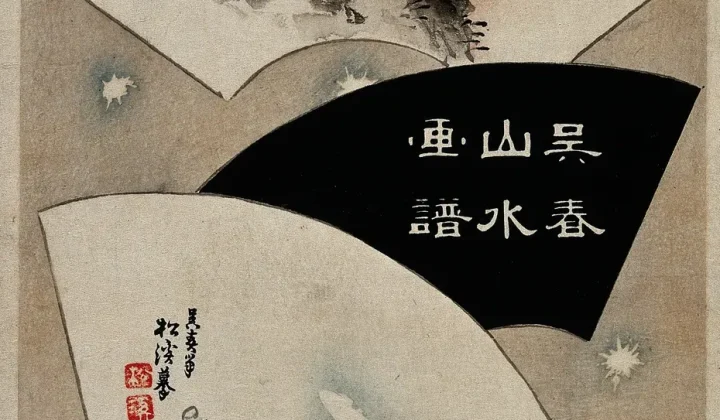 呉春
山水
画譜
呉春筆
松溪摹